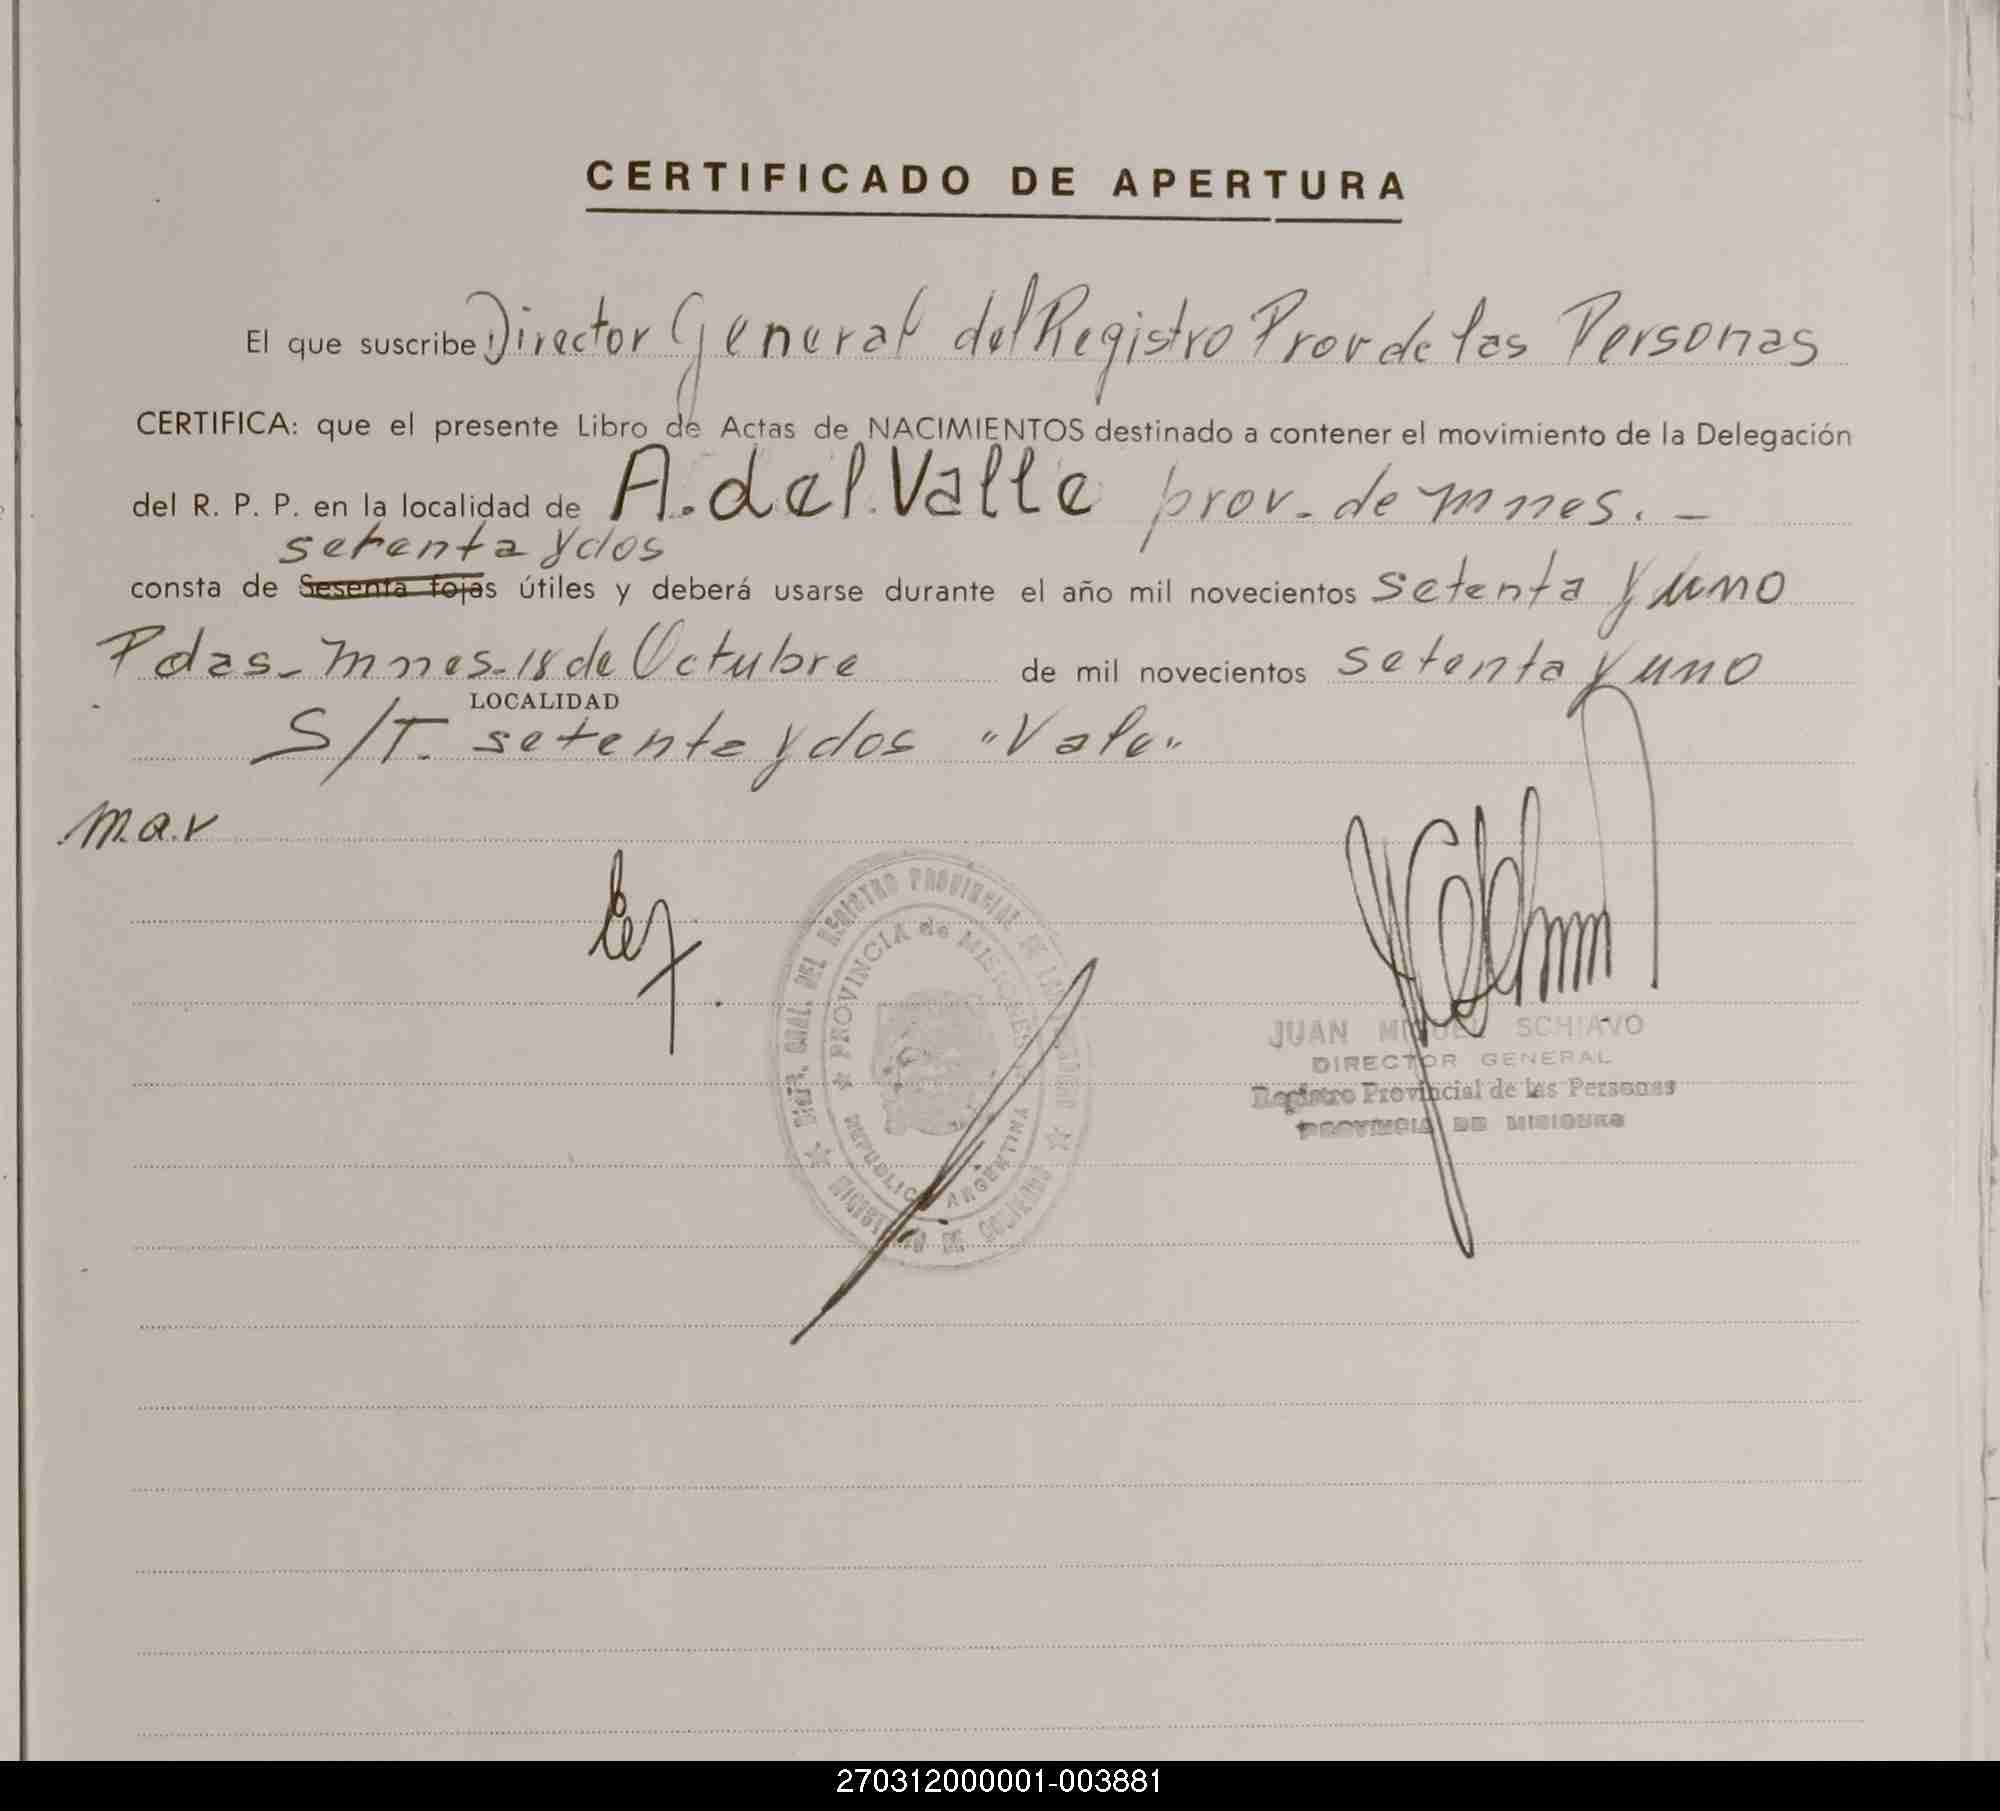 CERTIFICADO DE APERTURA
El que suscribe Director General del Registro Prov de las Personas
CERTIFICA: que el presente Libro de Actas de NACIMIENTOS destinado a contener el movimiento de la Delegación
del R. P. P. en la localidad de A. del Valle prov. de mnes. -
setenta y dos
consta de Sesenta fojas útiles y deberá usarse durante el año mil novecientos setenta y uno
Pdas - mnes - 18 de Octubre de mil novecientos setenta y uno
LOCALIDAD
S/T. setenta y dos "Vale"
m.a.v
DIREC. GRAL. DEL REGISTRO PROVINCIAL DE LAS PERSONAS
PROVINCIA de MISIONES
REPUBLICA ARGENTINA
MINISTERIO DE GOBIERNO
JUAN MIGUEL SCHIAVO
DIRECTOR GENERAL
Registro Provincial de las Personas
PROVINCIA DE MISIONES
270312000001-003881